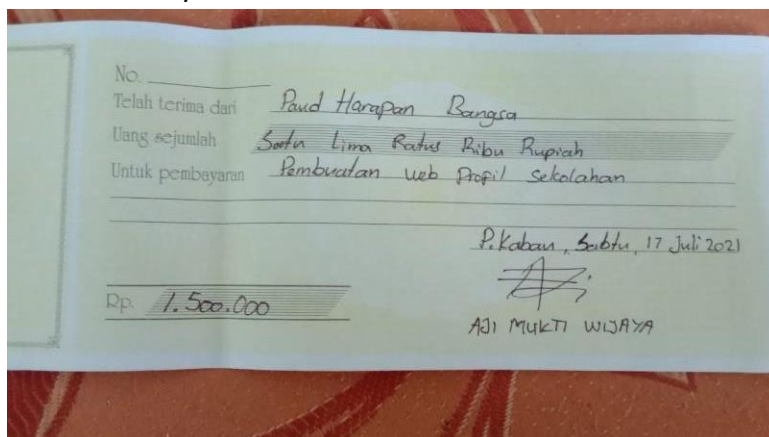 No.
Telah terima dari Paud Harapan Bangsa
Uang sejumlah Satu Lima Ratus Ribu Rupiah
Untuk pembayaran Pembuatan web Profil sekolahan
P. Kaban, Sabtu, 17 Juli 2021
Rp. 1.500.000
AJI MUKTI WIJAYA